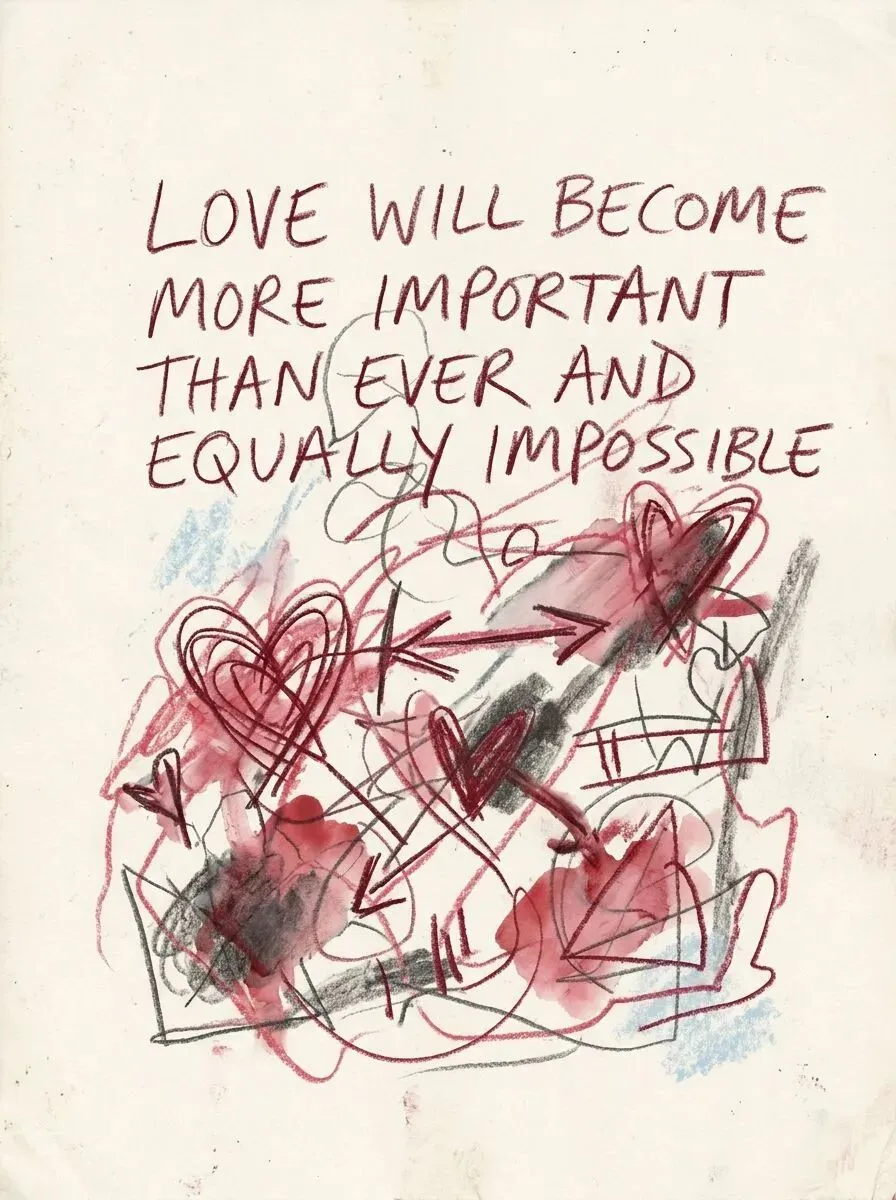 LOVE WILL BECOME
MORE IMPORTANT
THAN EVER AND
EQUALLY IMPOSSIBLE